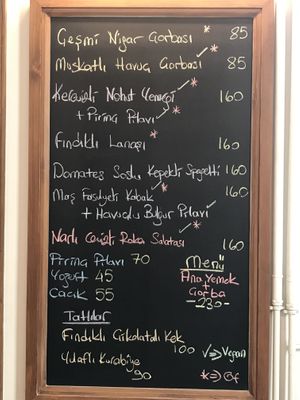 Geşmi Nigar Çorbası * 85
Muskatlı Havuç Çorbası ✓* 85
Kerevizli Nohut Yemeği ✓* 160
+ Pirinç Pilavı *
Fındıklı * 160
Domates Soslu Kepekli Spegetti 160
Maş Fasulyeli Kabak ✓* 160
+ Havuçlu Bulgur Pilavı ✓
Narlı Cevizli Roka Salatası ✓* 160
Pirinç Pilavı 70
Yoğurt 45
Cacık 55
Menü
Ana Yemek
+
Çorba
-230-
Tatlılar
Fındıklı Çikolatalı Kek
100
Yulaflı Kurabiye
90
✓=> Vegan
*=> Gf